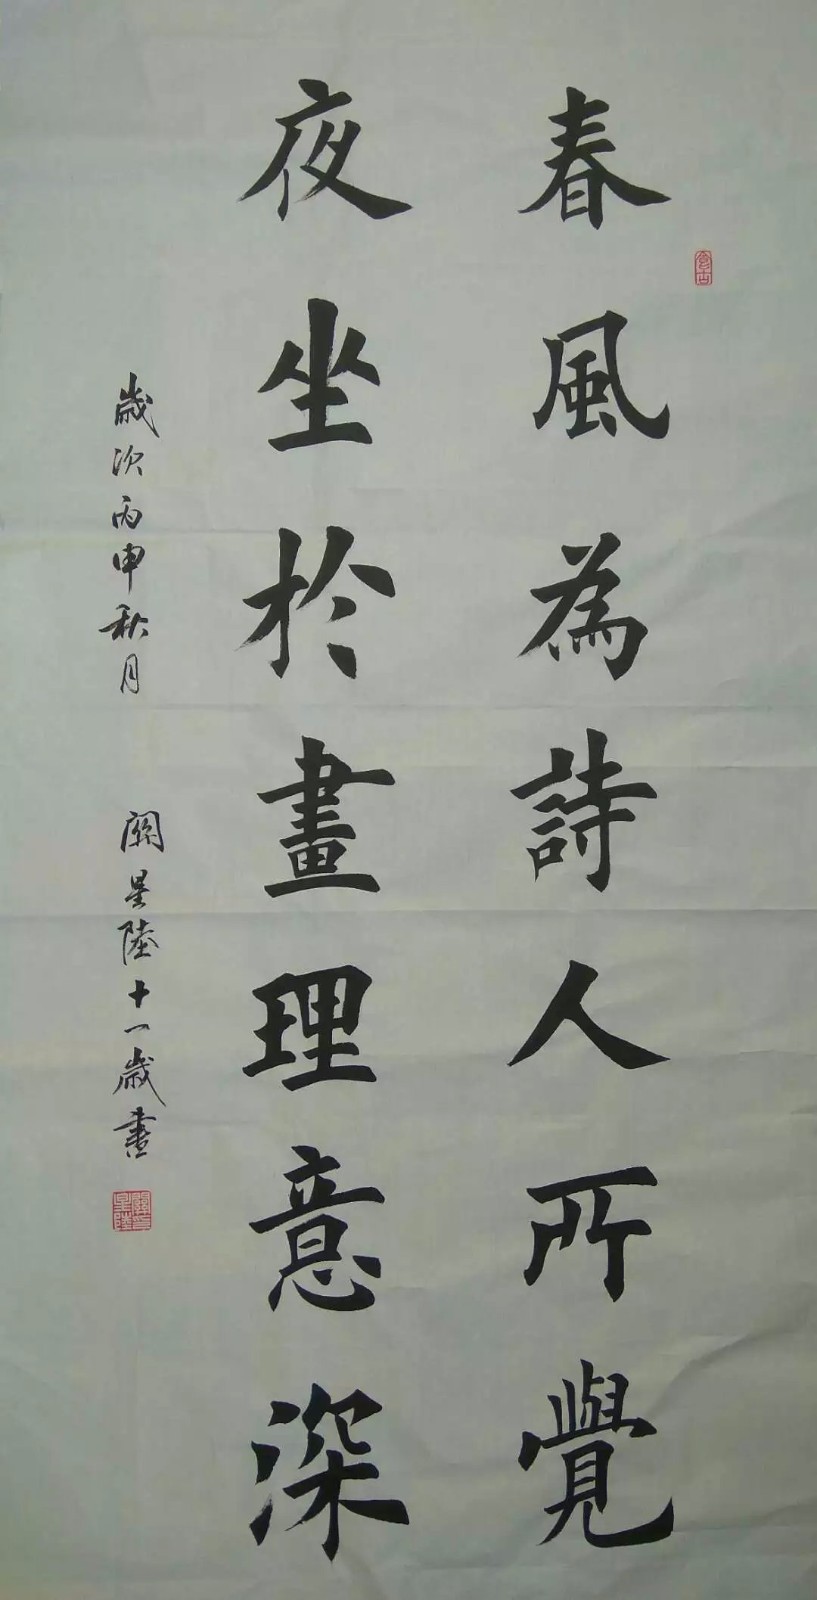 春風為詩人所覺
夜坐於畫理意深
歲次丙申秋月 闕星陸十一歲書